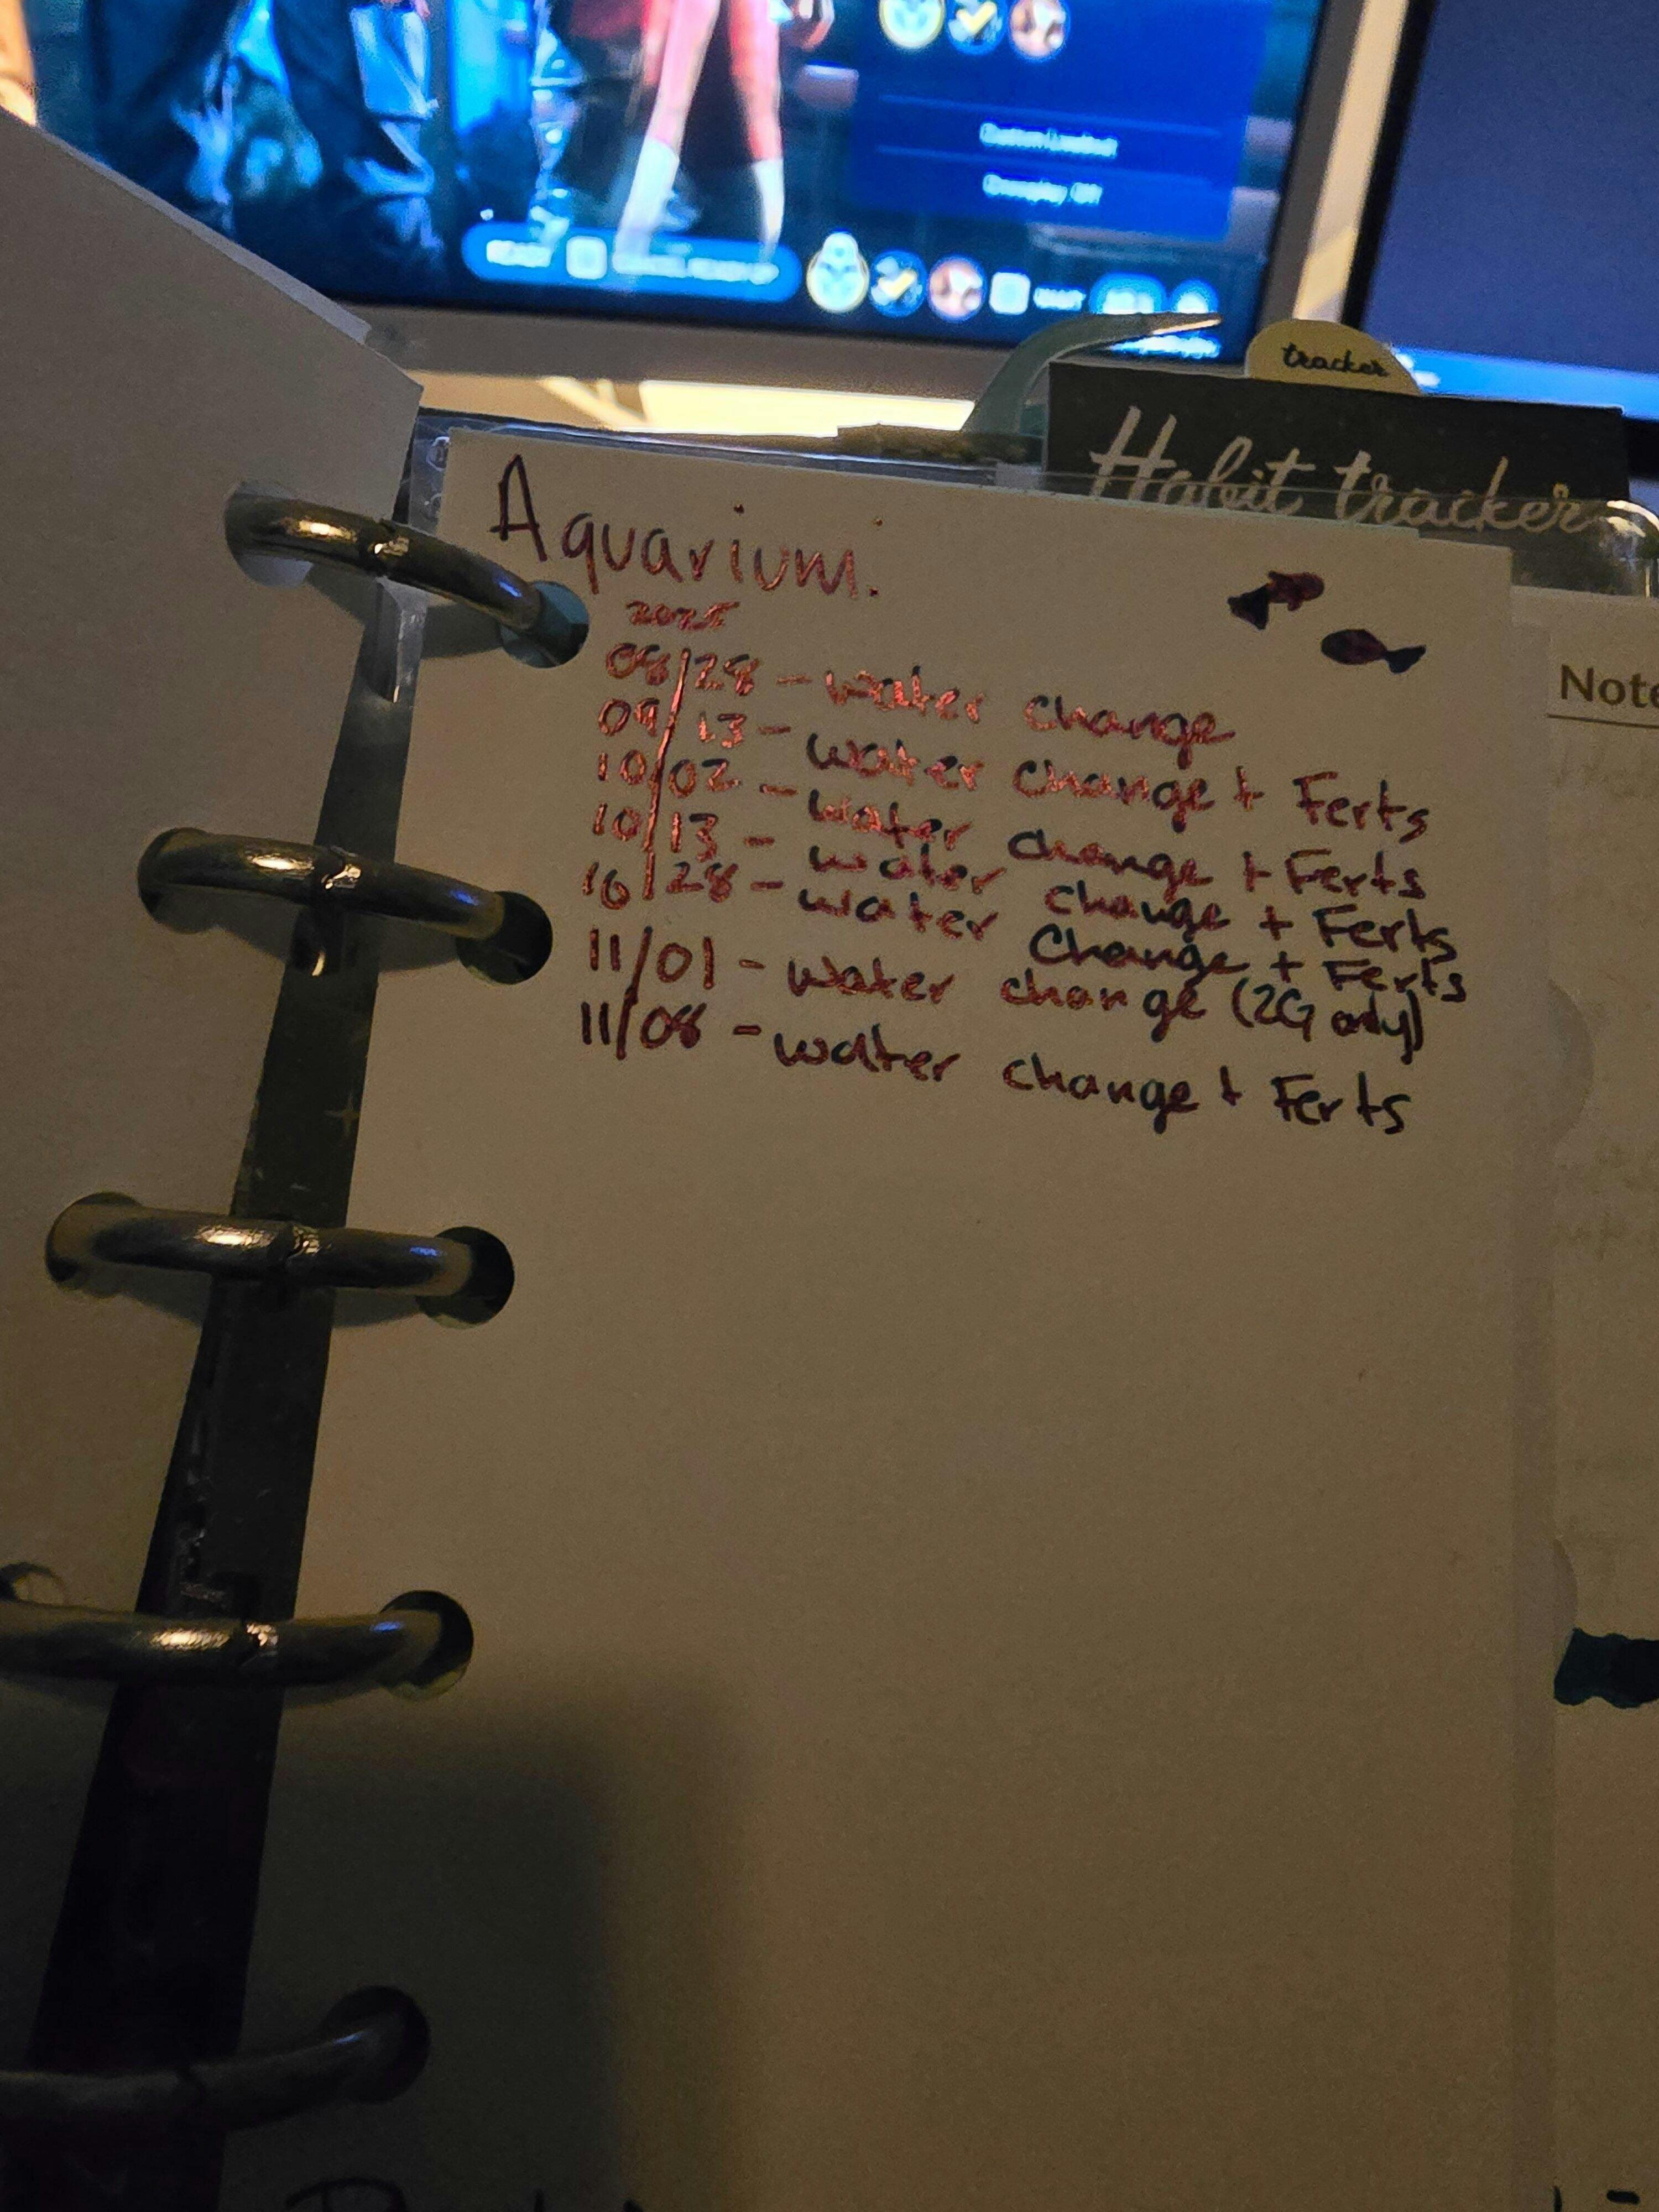 Custom Loadout
READY
tracker
Habit tracker
Aquarium:
2025
08/28 - water change
09/13 - water change + Ferts
10/02 - water change + Ferts
10/13 - water change + Ferts
10/28 - water change + Ferts
11/01 - water change (2G only)
11/08 - water change + Ferts
Note